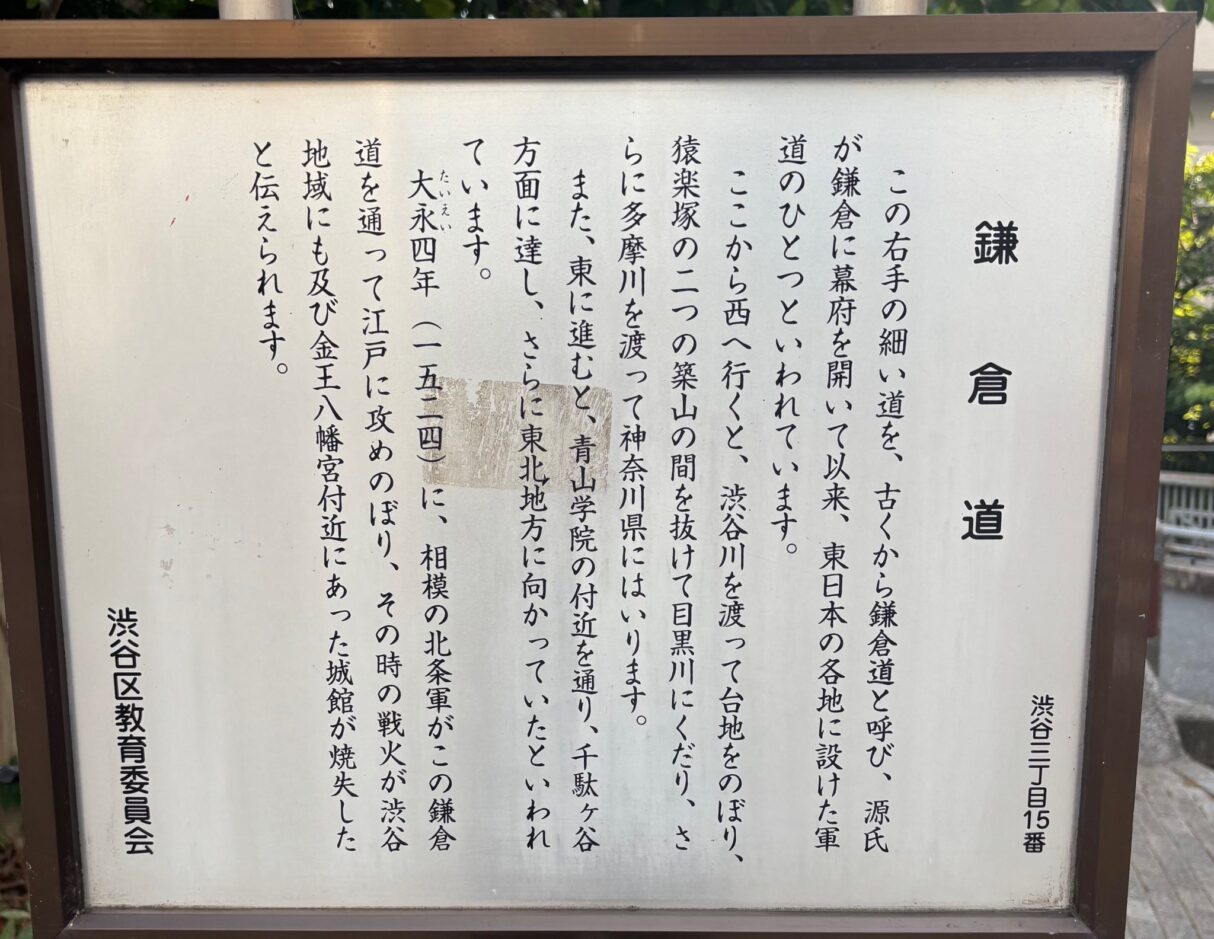 渋谷三丁目15番
鎌倉道
この右手の細い道を、古くから鎌倉道と呼び、源氏
が鎌倉に幕府を開いて以来、東日本の各地に設けた軍
道のひとつといわれています。
ここから西へ行くと、渋谷川を渡って台地をのぼり、
猿楽塚の二つの築山の間を抜けて目黒川にくだり、さ
らに多摩川を渡って神奈川県にはいります。
また、東に進むと、青山学院の付近を通り、千駄ヶ谷
方面に達し、さらに東北地方に向かっていたといわれ
ています。
たいえい
大永四年（一五二四）に、相模の北条軍がこの鎌倉
道を通って江戸に攻めのぼり、その時の戦火が渋谷
地域にも及び金王八幡宮付近にあった城館が焼失した
と伝えられます。
渋谷区教育委員会